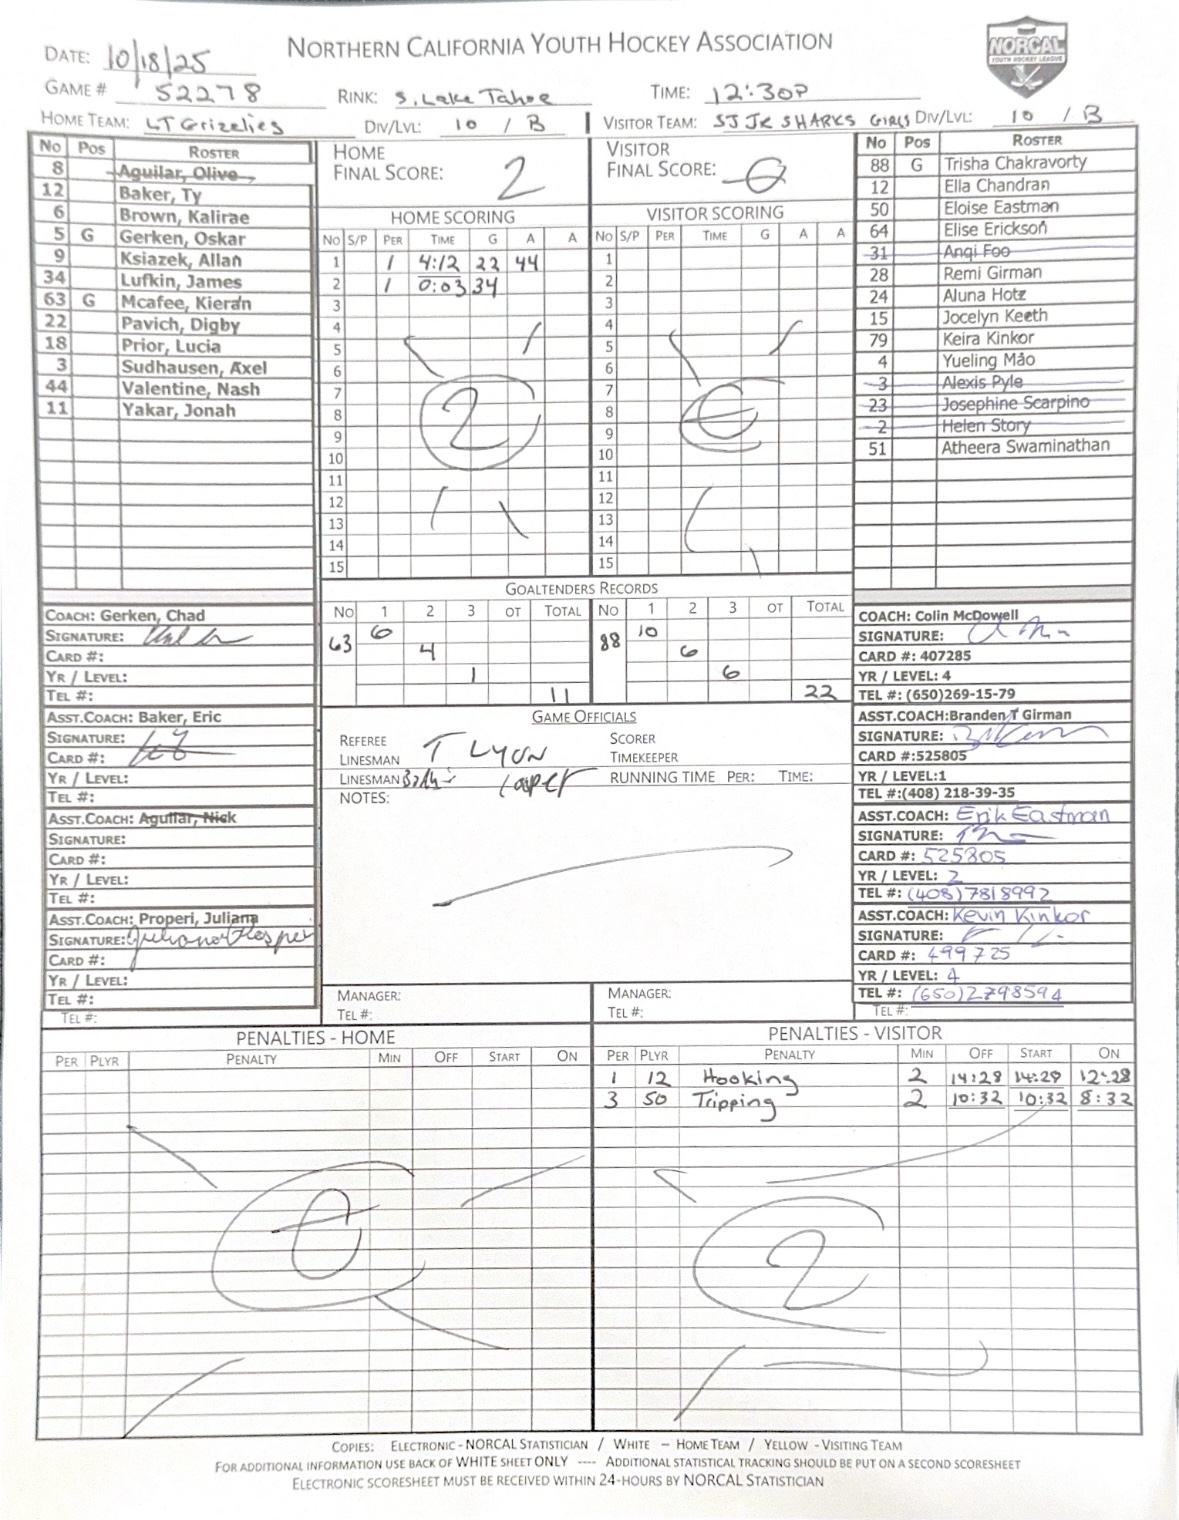 NORTHERN CALIFORNIA YOUTH HOCKEY ASSOCIATION
NORCAL
YOUTH HOCKEY LEAGUE
DATE: 10/18/25
GAME # 52278
RINK: S. Lake Tahoe
TIME: 12:30P
HOME TEAM: LT Grizelies
DIV/LVL: 10 / B
VISITOR TEAM: SJ JR SHARKS GIRLS
DIV/LVL: 10 / B
No Pos ROSTER
8 Aguilar, Olive
12 Baker, Ty
6 Brown, Kalirae
5 G Gerken, Oskar
9 Ksiazek, Allan
34 Lufkin, James
63 G Mcafee, Kieran
22 Pavich, Digby
18 Prior, Lucia
3 Sudhausen, Axel
44 Valentine, Nash
11 Yakar, Jonah
HOME
FINAL SCORE: 2
HOME SCORING
No S/P PER TIME G A A
1 1 4:12 22 44
2 1 0:03 34
3
4
5
6
7
8
9
10
11
12
13
14
15
2
VISITOR
FINAL SCORE: 0
VISITOR SCORING
No S/P PER TIME G A A
1
2
3
4
5
6
7
8
9
10
11
12
13
14
15
No Pos ROSTER
88 G Trisha Chakravorty
12 Ella Chandran
50 Eloise Eastman
64 Elise Erickson
31 Anqi Foo
28 Remi Girman
24 Aluna Hotz
15 Jocelyn Keeth
79 Keira Kinkor
4 Yueling Mao
3 Alexis Pyle
23 Josephine Scarpino
2 Helen Story
51 Atheera Swaminathan
GOALTENDERS RECORDS
No 1 2 3 OT TOTAL
63 6
4
1
11
No 1 2 3 OT TOTAL
88 10
6
6
22
COACH: Gerken, Chad
SIGNATURE:
CARD #:
YR / LEVEL:
TEL #:
ASST.COACH: Baker, Eric
SIGNATURE:
CARD #:
YR / LEVEL:
TEL #:
ASST.COACH: Aguilar, Nick
SIGNATURE:
CARD #:
YR / LEVEL:
TEL #:
ASST.COACH: Properi, Juliana
SIGNATURE:
CARD #:
YR / LEVEL:
TEL #:
TEL #:
GAME OFFICIALS
REFEREE
LINESMAN T LYON
LINESMAN
SCORER
TIMEKEEPER
RUNNING TIME PER: TIME:
NOTES:
MANAGER:
TEL #:
MANAGER:
TEL #:
COACH: Colin McDowell
SIGNATURE:
CARD #: 407285
YR / LEVEL: 4
TEL #: (650)269-15-79
ASST.COACH:Branden T Girman
SIGNATURE:
CARD #:525805
YR / LEVEL:1
TEL #:(408) 218-39-35
ASST.COACH: Erik Eastman
SIGNATURE:
CARD #: 525805
YR / LEVEL: 2
TEL #: (408)7818992
ASST.COACH: Kevin Kinkor
SIGNATURE:
CARD #: 499725
YR / LEVEL: 4
TEL #: (650)2798594
TEL #:
PENALTIES - HOME
PER PLYR PENALTY MIN OFF START ON
0
PENALTIES - VISITOR
PER PLYR PENALTY MIN OFF START ON
1 12 Hooking 2 14:28 14:28 12:28
3 50 Tripping 2 10:32 10:32 8:32
2
COPIES: ELECTRONIC - NORCAL STATISTICIAN / WHITE – HOME TEAM / YELLOW - VISITING TEAM
FOR ADDITIONAL INFORMATION USE BACK OF WHITE SHEET ONLY ---- ADDITIONAL STATISTICAL TRACKING SHOULD BE PUT ON A SECOND SCORESHEET
ELECTRONIC SCORESHEET MUST BE RECEIVED WITHIN 24-HOURS BY NORCAL STATISTICIAN